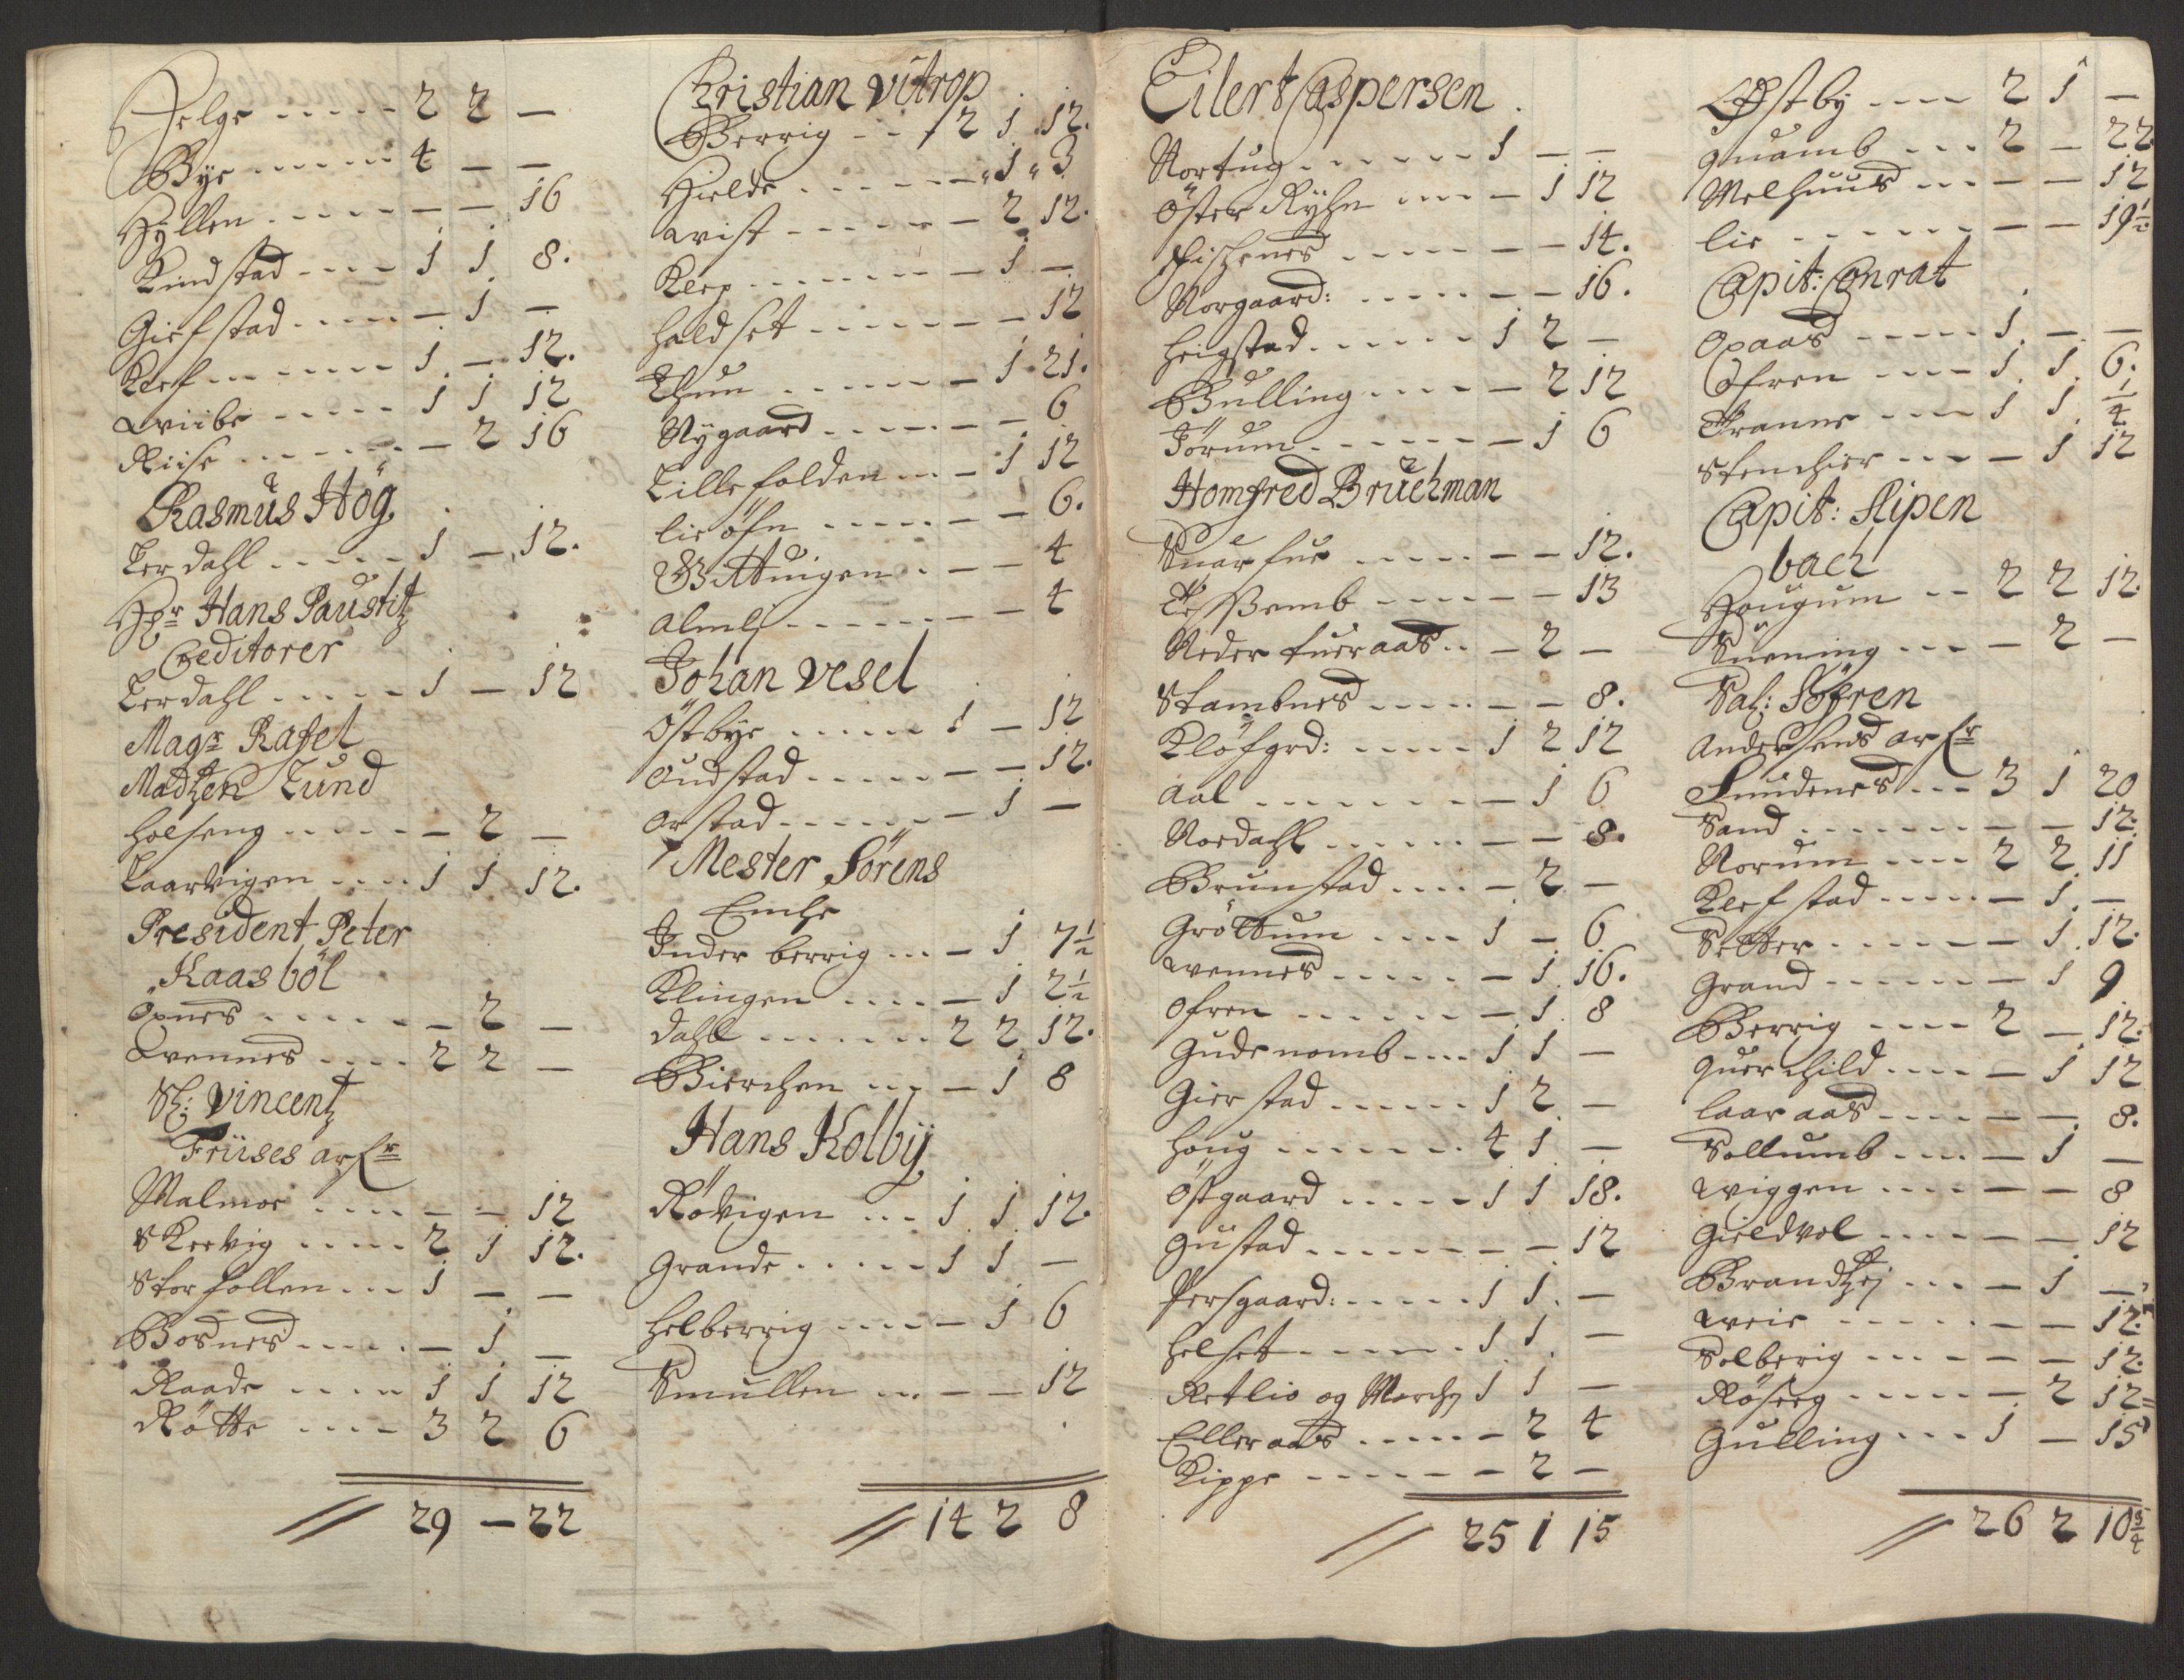 Helge ----- 2 2 —
Bye ----- 4 — —
Hyllen ----- — — 16
Kindstad ---- 1 1 8.
Giefstad ----- — 1 —
Klef ------- 1 — 12.
Qviibe ----- 1 1 12
Riise ------ — 2 16
Rasmus Hög.
Lerdahl ----- 1 — 12.
Hr Hans Paustitz
Creditorer
Lerdahl ----- 1 — 12
Magr Rafel
Madtzen Lund
holseng ----- — 2 —
Laarvigen ---- 1 1 12.
President Peter
Kaasböl
Oxnes ------ — 2 —
Qvennes ---- 2 2 —
Sl: Vincentz
Friises arfr
Malmoe ---- — — 12
Skeevig ----- 2 1 12.
Storfollen --- 1 — —
Bosnes ----- — 1 —
Raade ---- 1 1 12
Røtte ---- 3 2 6
29 — 22
Christian Vitrop
Berrig --- 2 1 12.
Hielde ------ „ 1 „ 3
Qvist ------ — 2 12.
Klep ------- — 1 —
haldset ----- — — 12
Thun ------ — 1 21.
Nygaard ----- — — 6
Lillefolden --- — 1 12
lieøfn ----- — — 6.
Vittuigen - — — 4
Almlj ------ — — 4
Johan Vesel
Östbye ----- 1 — 12
Oudstad ----- — — 12.
Orstad ------ — 1 —
Mester Sörens
Enche
Inderberrig --- — 1 7½
Klingen ---- — 1 2½
Dahl ------- 2 2 12.
Bierchen --- — 1 8
Hans Kolbÿ
Rövigen --- 1 1 12.
Grande ----- 1 1 —
Helberrig ---- — 1 6
Smullen --- — — 12
14 2 8
Eilert Caspersen
Nortug ------ 1 — —
Öster Ryhn ---- — 1 12
Fischenes ----- — — 14.
Norgaard: ----- — — 16.
heigstad ------ 1 2 —
Bulling ---- — 2 12
Jörum ------ — 1 6
Homfred Bruchman
Snarfue ----- — — 12.
Neder fueraas -- — 2 —
Stambnes ----- — — 8.
Klöfgrd: ----- 1 2 12
Aal ------- — 1 6
Nordahl ------ — — 8.
Brunstad ---- — 2 —
Gröttum ---- 1 — 6
Qvennes ----- — 1 16.
Ofren ------ — 1 8
Gudenomb ---- 1 1 —
Gierstad ----- 1 2 —
houg ------ 4 1 —
Östgaard ----- 1 1 18.
Gustad ------ — — 12
Persgaard: ----- 1 1 —
helset ------ 1 1 —
Retlio og March 1 1 —
Elleraas ----- — 2 4
Kippe ------ — 2 —
25 1 15
Østby ---- 2 1 —
Quamb --- 2 — 22
Melhuus --- — — 12
lie ------- — — 19½
Capit: Conrat
Opaas ----- 1 — —
Ofren ---- 1 1 6.
Tranne ---- 1 1 ¼
Stenchier --- — 1 12
Capit: Sipen
bach
Hougum -- 2 2 12.
Suening --- — 2 —
Sal: Söfren
Andersens arfr
Sundenes --- 3 1 20
Sand ------- — — 12.
Norum ---- 2 2 11
Klefstad ----- — 1 —
Setter ------ — 1 12.
Grand ------ — 1 9
Berrig ---- 2 — 12.
Querchild ---- — 1 12
laaraas ----- — — 8.
Sollumb ---- — 1 —
Wiggen ---- — — 8
Gieldvol ----- — — 12
Brandtzej --- — 1 —
Weie ------ — — 12.
Solberig ---- — — 12.
Røseg ----- — 2 12
Gulling --- 1 — 15
26 2 10¾